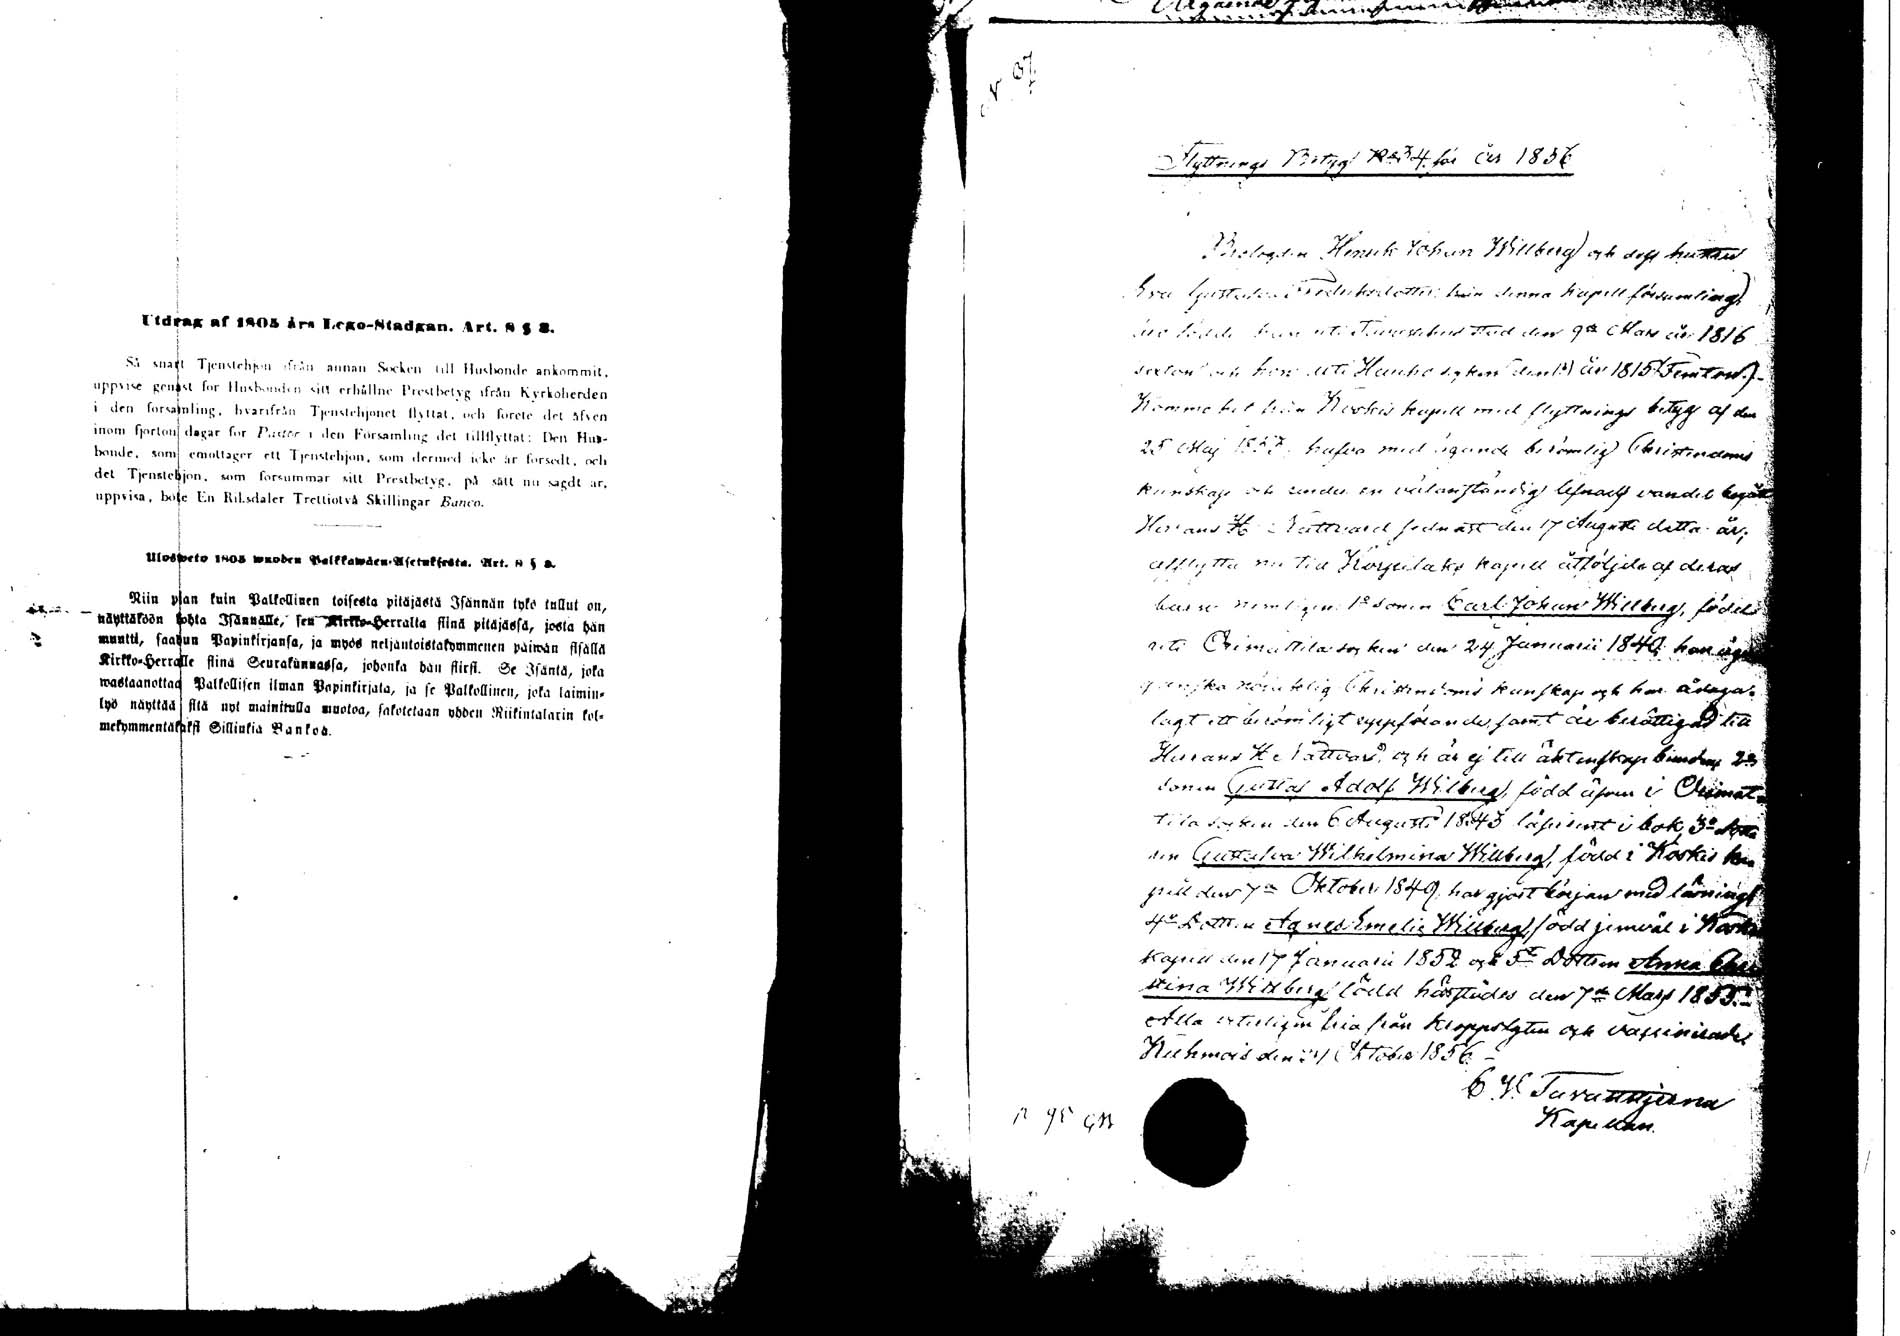 Utdrag af 1805 års Lego-Stadgan. Art. 8 § 3.
Så snart Tjenstehjon ifrån annan Socken till Husbonde ankommit,
uppvise genast för Husbonden sitt erhållne Prestbetyg ifrån Kyrkoherden
i den församling, hvarifrån Tjenstehjonet flyttat, och förete det äfven
inom fjorton dagar för Pastor i den Församling det tillflyttat: Den Hus-
bonde, som emottager ett Tjenstehjon, som dermed icke är försedt, och
det Tjenstehjon, som försummar sitt Prestbetyg, på sätt nu sagdt är,
uppvisa, böte En Riksdaler Trettiotvå Skillingar Banco.
Ulosweto 1805 wuoden Palkkawäen-Asetuksesta. Art. 8 § 3.
Niin pian kuin Palkollinen toisesta pitäjästä Isännän tykö tullut on,
näyttäköön kohta Isännälle, sen Kirkko-Herralta siinä pitäjässä, josta hän
muutti, saadun Papinkirjansa, ja myös neljäntoistakymmenen päiwän sisällä
Kirkko-Herralle siinä Seurakunnassa, johonka hän siirsi. Se Isäntä, joka
wastaanottaa Palkollisen ilman Papinkirjata, ja se Palkollinen, joka laimin-
lyö näyttää sitä nyt mainitulla muotoa, sakotetaan yhden Riikintalarin kol-
mekymmentäkaksi Sillinkiä Bankos.
N 67
Flyttnings Betyg No 34 för år 1856
Henrik Johan Willberg och dess hustru
Eva Gustava Fredriksdotter från denna kapell församling,
äro födde han uti Tavastehus stad den 9de Mars år 1816
sexton och hon uti Hauho socken den år 1815 (Femton).
Komme hit från Koskis kapell med flyttnings betyg af den
25 Maj hafva med ägande berömlig Christendoms
kunskap och under en välanständig lefnads vandel begått
Herrans H. Nattvard sednast den 17 Augusti detta år;
afflytta nu till Korpilaks kapell åtföljde af deras
barn nemligen: 1o sonen Carl Johan Willberg, född
uti Orimattila socken den 24 Januarii 1840, han äger
ganska nöjaktig Christendoms kunskap och har ådaga-
lagt ett berömligt uppförande, samt är berättigad till
Herrans H. Nattvard, och är ej till äktenskap bunden 2o
sonen Gustaf Adolf Willberg, född äfven i Orimat-
tila socken den 6 Augusti 1843 läser i bok, 3o dotte
ren Gustafva Wilhelmina Willberg, född i Koskis ka
pell den 7de Oktober 1849, har gjort början med läsning,
4o Dottren Agnes Emelie Willberg, född jemväl i Koskis
kapell den 17 Januarii 1852 och 5o Dottren Anna Chri
stina Willberg född härstädes den 7de Mars 1855.
Alla äro fria från kroppslyten och vaccinerade.
Kuhmois den Oktober 1856
Kapellan.